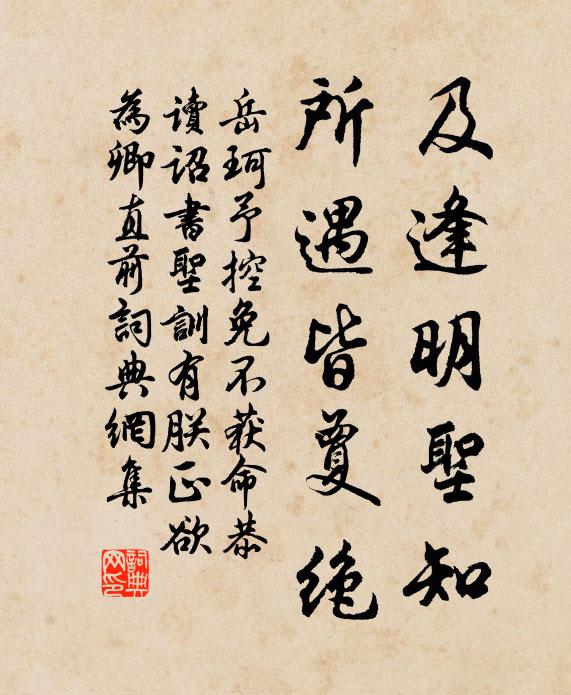 及逢明聖知
所遇皆夐絶
岳珂予控免不获命恭
讀詔書聖訓有朕正欲
為卿直前詞典網集
詞典
网印